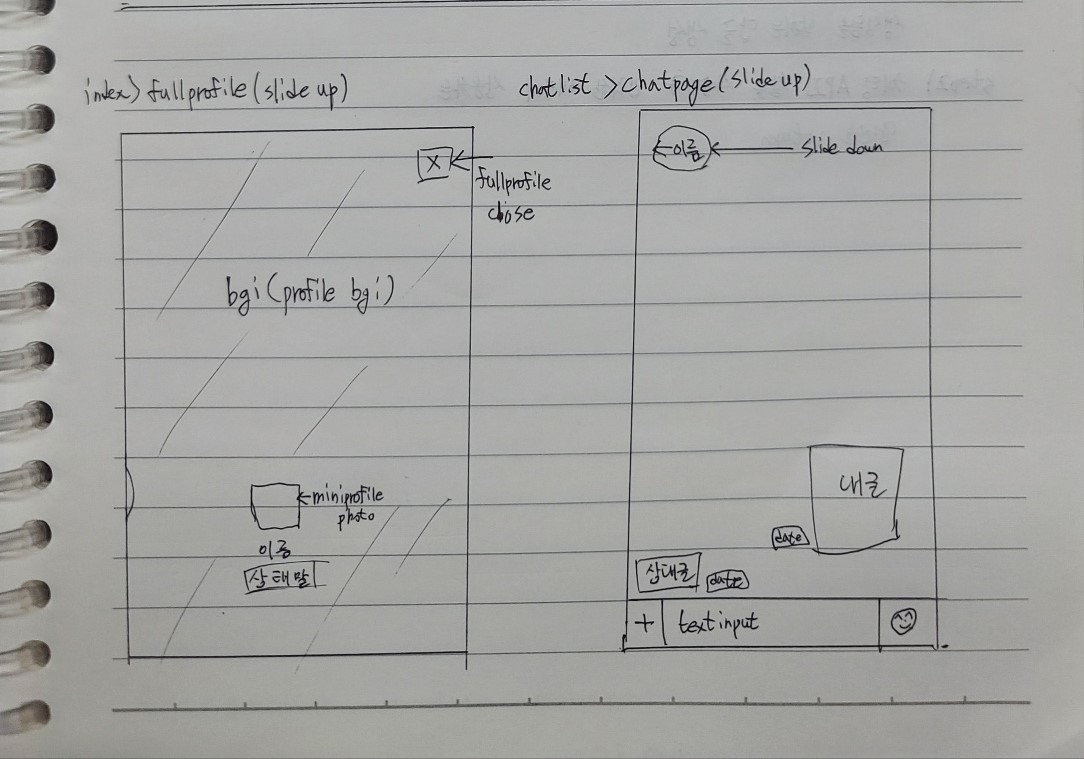 index > fullprofile (slide up)
X
fullprofile
close
bgi (profile bgi)
miniprofile
photo
이름
상태말
chatlist > chatpage (slide up)
이름
slide down
내글
date
상대글
date
+
text input